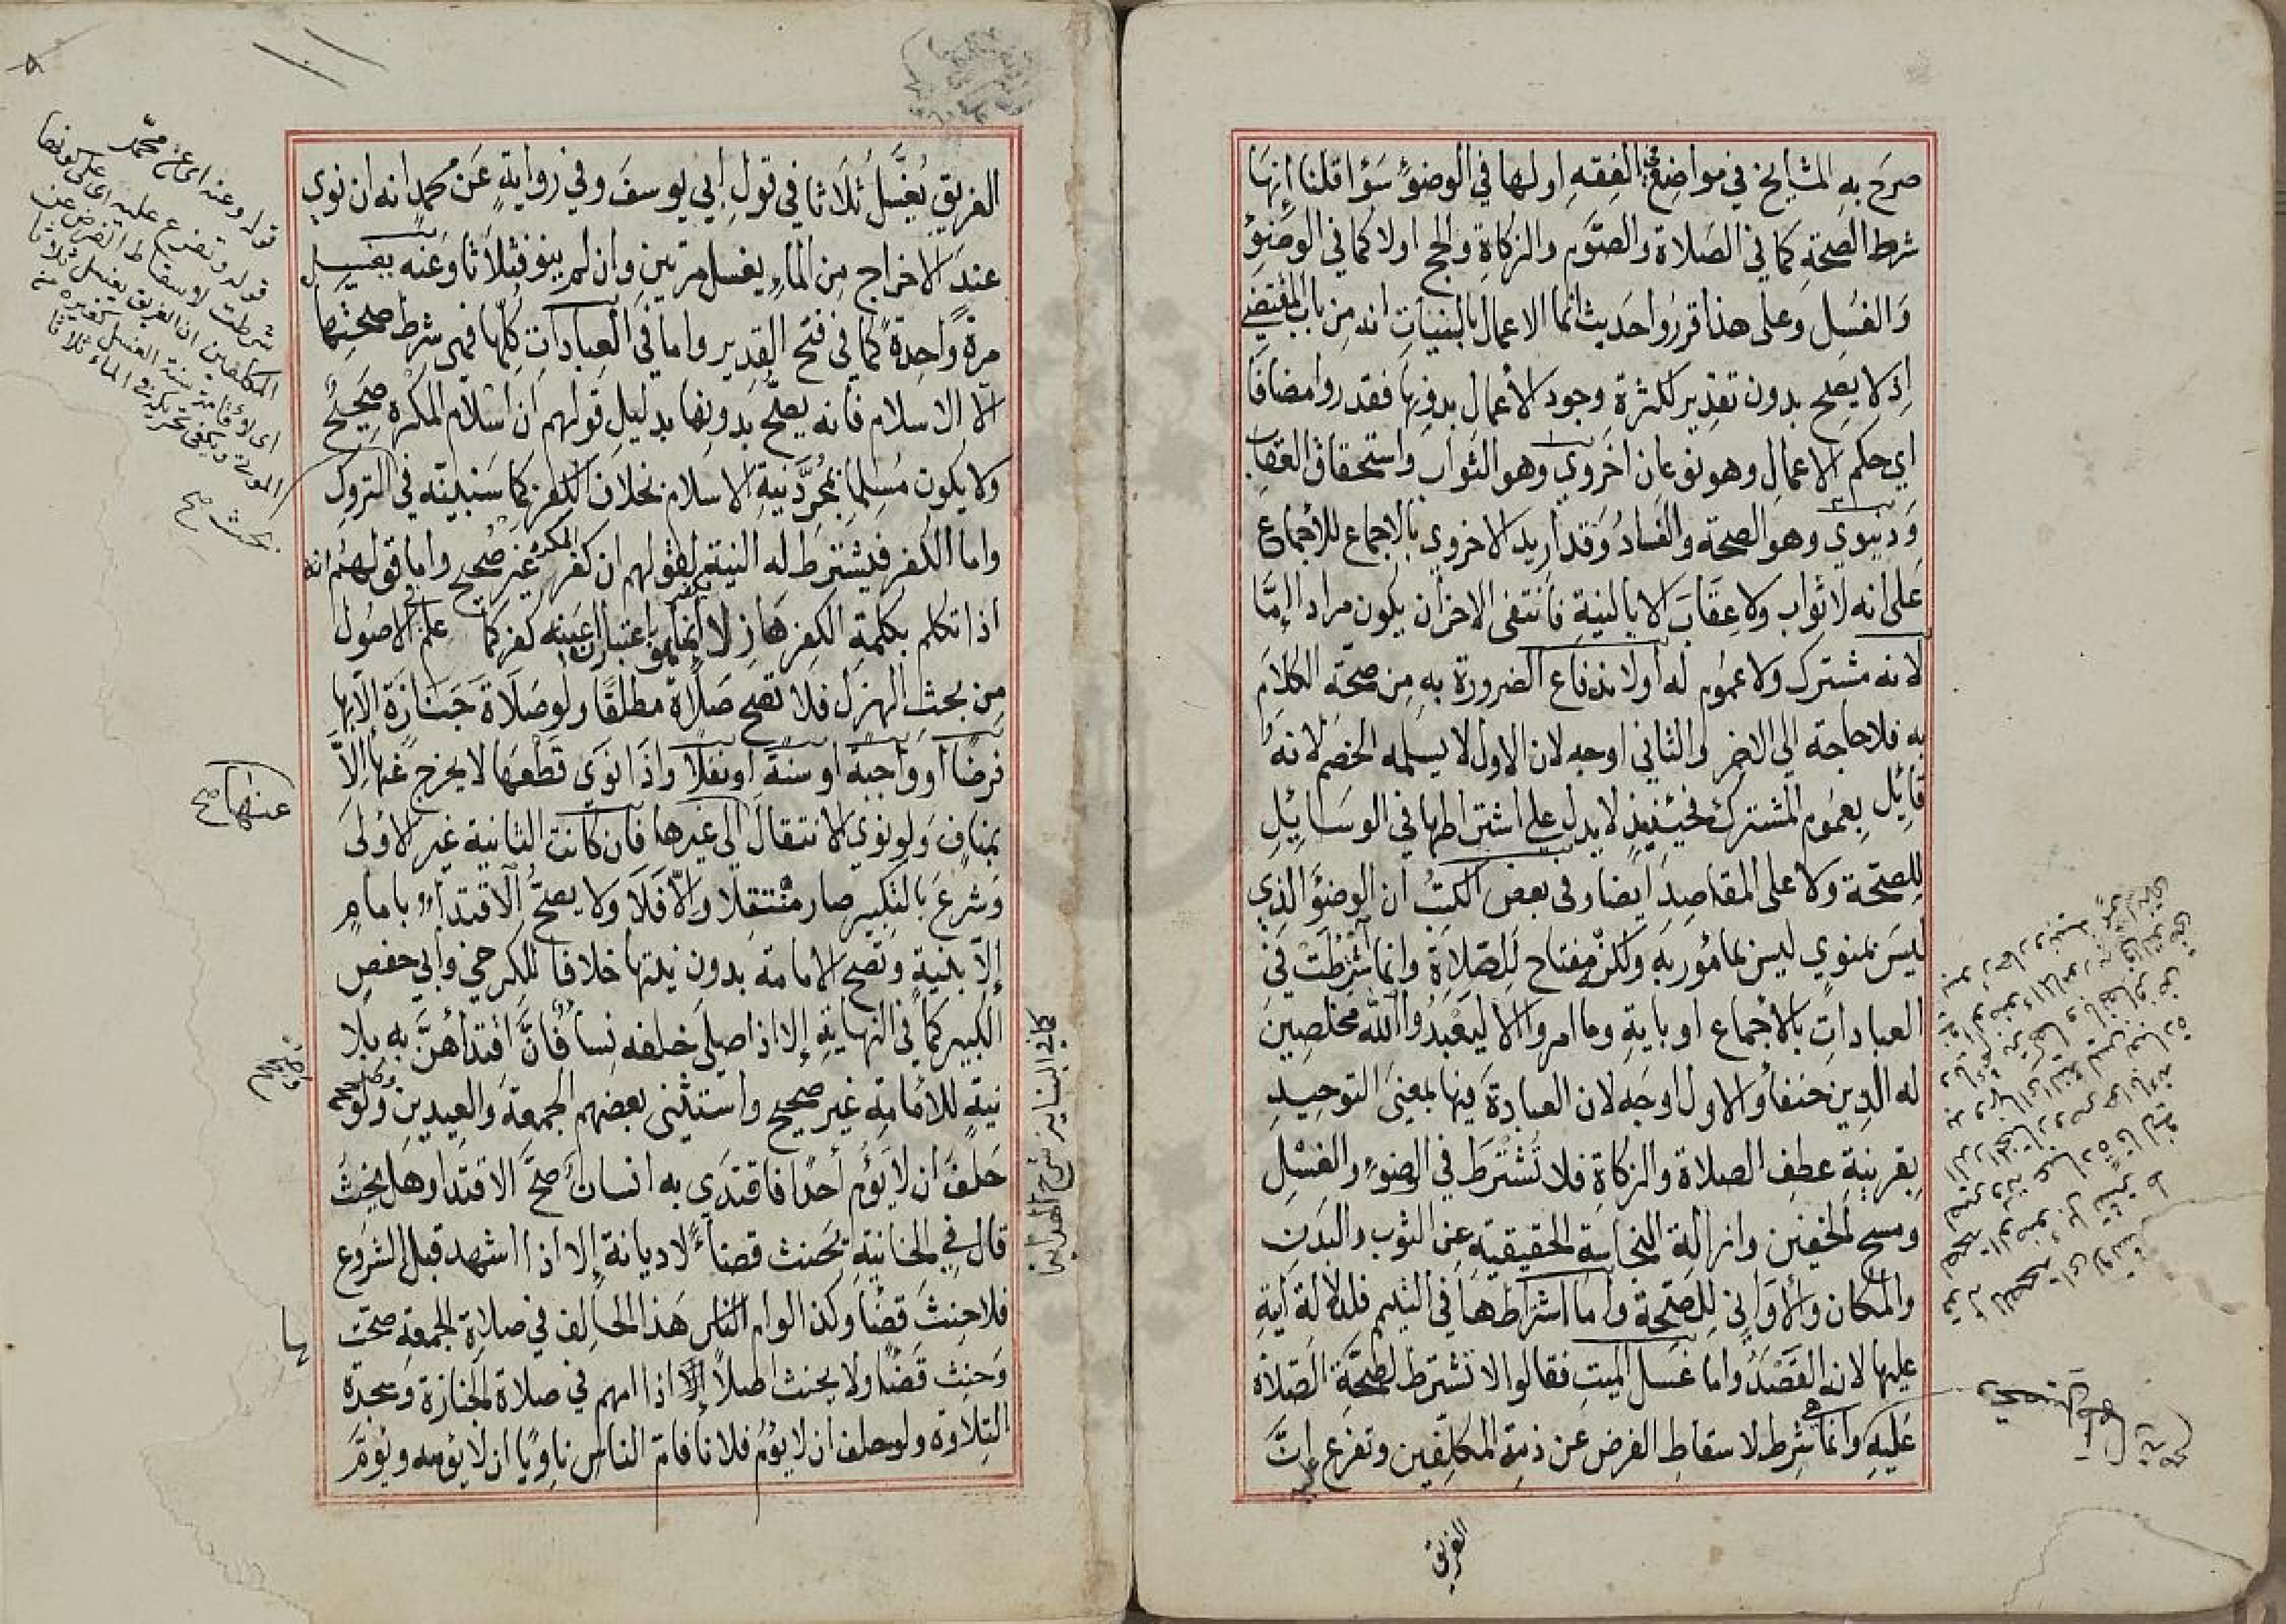 صرح به المشايخ في مواضع من الفقه اولها في الوضوء سؤا قلنا إنها
شرط الصحة كما في الصلاة والصوم والزكاة والحج اولا كما في الوضوء
والغسل وعلى هذا قرروا حديث انما الاعمال بالنيات انه من باب المقتضى
إذ لا يصح بدون تقدير لكثرة وجود الأعمال بدونها فقدروا مضافا
اي حكم الاعمال وهو نوعان اخروي وهو الثواب واستحقاق العقاب
ودنيوي وهو الصحة والفساد وقد اريد الاخروي بالاجماع للاجماع
على انه لا ثواب ولا عقاب الا بالنية فانتفى الاخر ان يكون مرادا إمّا
لانه مشترك ولا عموم له أولا ندفاع الضرورة به من صحة الكلام
به فلا حاجة الي الاخر والثاني اوجه لان الاول لا يسلمه الخصم لانه
قايل بعموم المشترك فحينئذ لا يدل علي اشتراطها في الوسايل
للصحة ولا على المقاصد ايضا وفي بعض الكتب ان الوضوء الذي
ليس بمنوي ليس بمامور به ولكنه مفتاح للصلاة وانما شرطت في
العبادات بالاجماع او باية وما امروا الا ليعبدوا الله مخلصين
له الدين حنفا والاول اوجه لان العبادة فيها بمعنى التوحيد
بقرينة عطف الصلاة والزكاة فلا تشترط في الوضوء والغسل
ومسح الخفين وازالة النجاسة الحقيقية عن الثوب والبدن
والمكان والأواني للصحة واما اشتراطها في التيمم فلدلالة آيته
عليها لانه القصد واما غسل الميت فقالوا لا تشترط لصحة الصلاة
عليه وانما هي شرط لاسقاط الفرض عن ذمة المكلفين وتفرع عليه ان
الغريق
الغريق يغسل ثلاثا في قول ابي يوسف وفي رواية عن محمد انه ان نوي
عند الاخراج من الماء يغسل مرتين وان لم ينو فثلاثا وعنه يغسل
مرة واحدة كما في فتح القدير واما في العبادات كلها فهي شرط صحتها
الا الاسلام فانه يصح بدونها بدليل قولهم ان اسلام المكره صحيح
ولا يكون مسلما بمجرد نية الاسلام بخلاف الكفر كما سنبينه في التروك
واما الكفر فيشترط له النية لقولهم ان كفر المكره غير صحيح واما قولهم انه
اذا تكلم بكلمة الكفر هازلا يكفر انما هو باعتبار ان عينه كفر كما في علم الاصول
من بحث الهزل فلا تصح صلاة مطلقا ولو صلاة جنازة إلا بها
فرضا او واجبة او سنة او نفلا واذا نوي قطعها لا يخرج عنها إلا
بمناف ولو نوي الانتقال الى غيرها فان كانت الثانية غير الاولى
وشرع بالتكبير صار منتقلا والا فلا ولا يصح الاقتداء بامام
إلا بنية وتصح الامامة بدون نيتها خلافا للكرخي وابي حفص
الكبير كما في النهاية إلا اذا صلي خلفه نسا فان اقتداهن به بلا
نية للامامة غير صحيح واستثنى بعضهم الجمعة والعيدين ولو
حلف أن لا يؤم أحدا فاقتدي به انسان صح الاقتدا وهل يحنث
قال في الخانية يحنث قضاء لا ديانة إلا اذا اشهد قبل الشروع
فلا حنث قضا وكذا لو ام الناس هذا الحالف في صلاة الجمعة صحت
وحنث قضا ولا يحنث اصلا اذا امهم في صلاة الجنازة وسجدة
التلاوة ولو حلف ان لا يؤم فلانا فام الناس ناويا ان لا يؤمه ويؤم
قوله وعنه اى عن محمد
قوله وتفرع عليه اى على كونها
شرطت لاسقاط الفرض عن
المكلفين ان الغريق يغسل ثلاثا
عنها صح
بحث صح